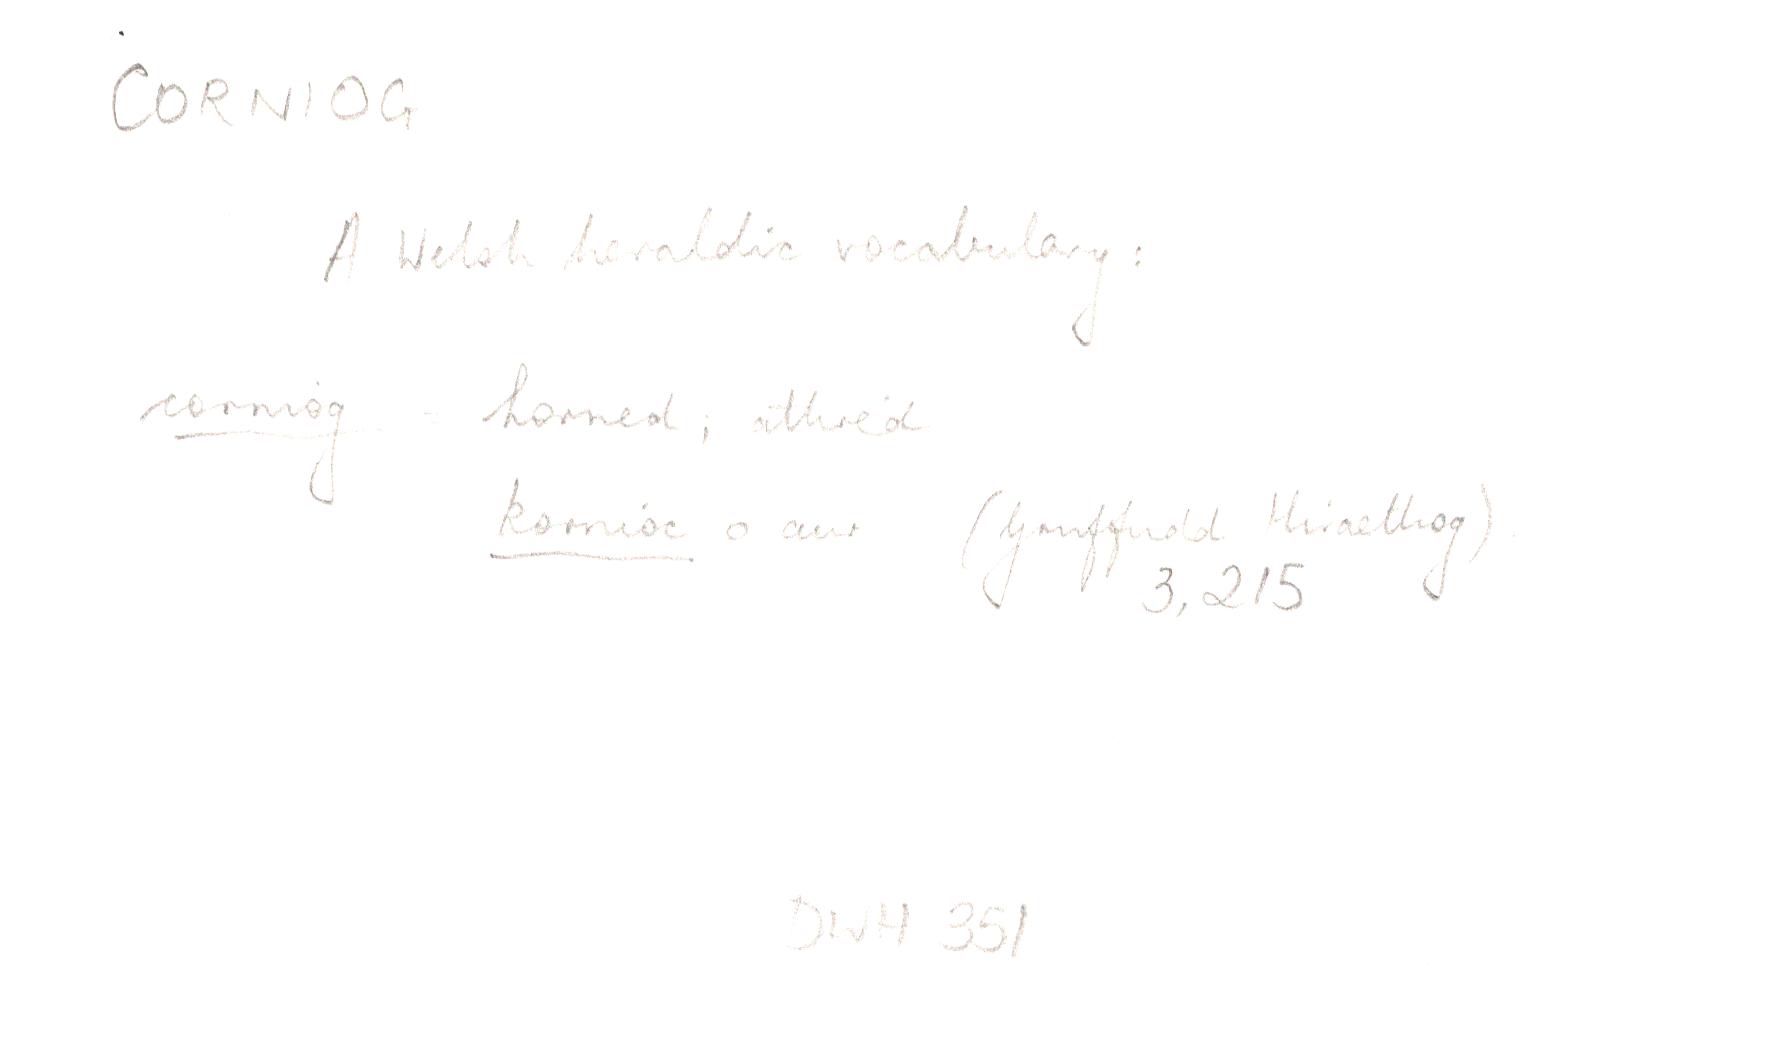 CORNIOG
A Welsh heraldic vocabulary:
corniog - horned; attired
kornioc o aur (Gruffudd Hiraethog)
3, 215
DWH 351